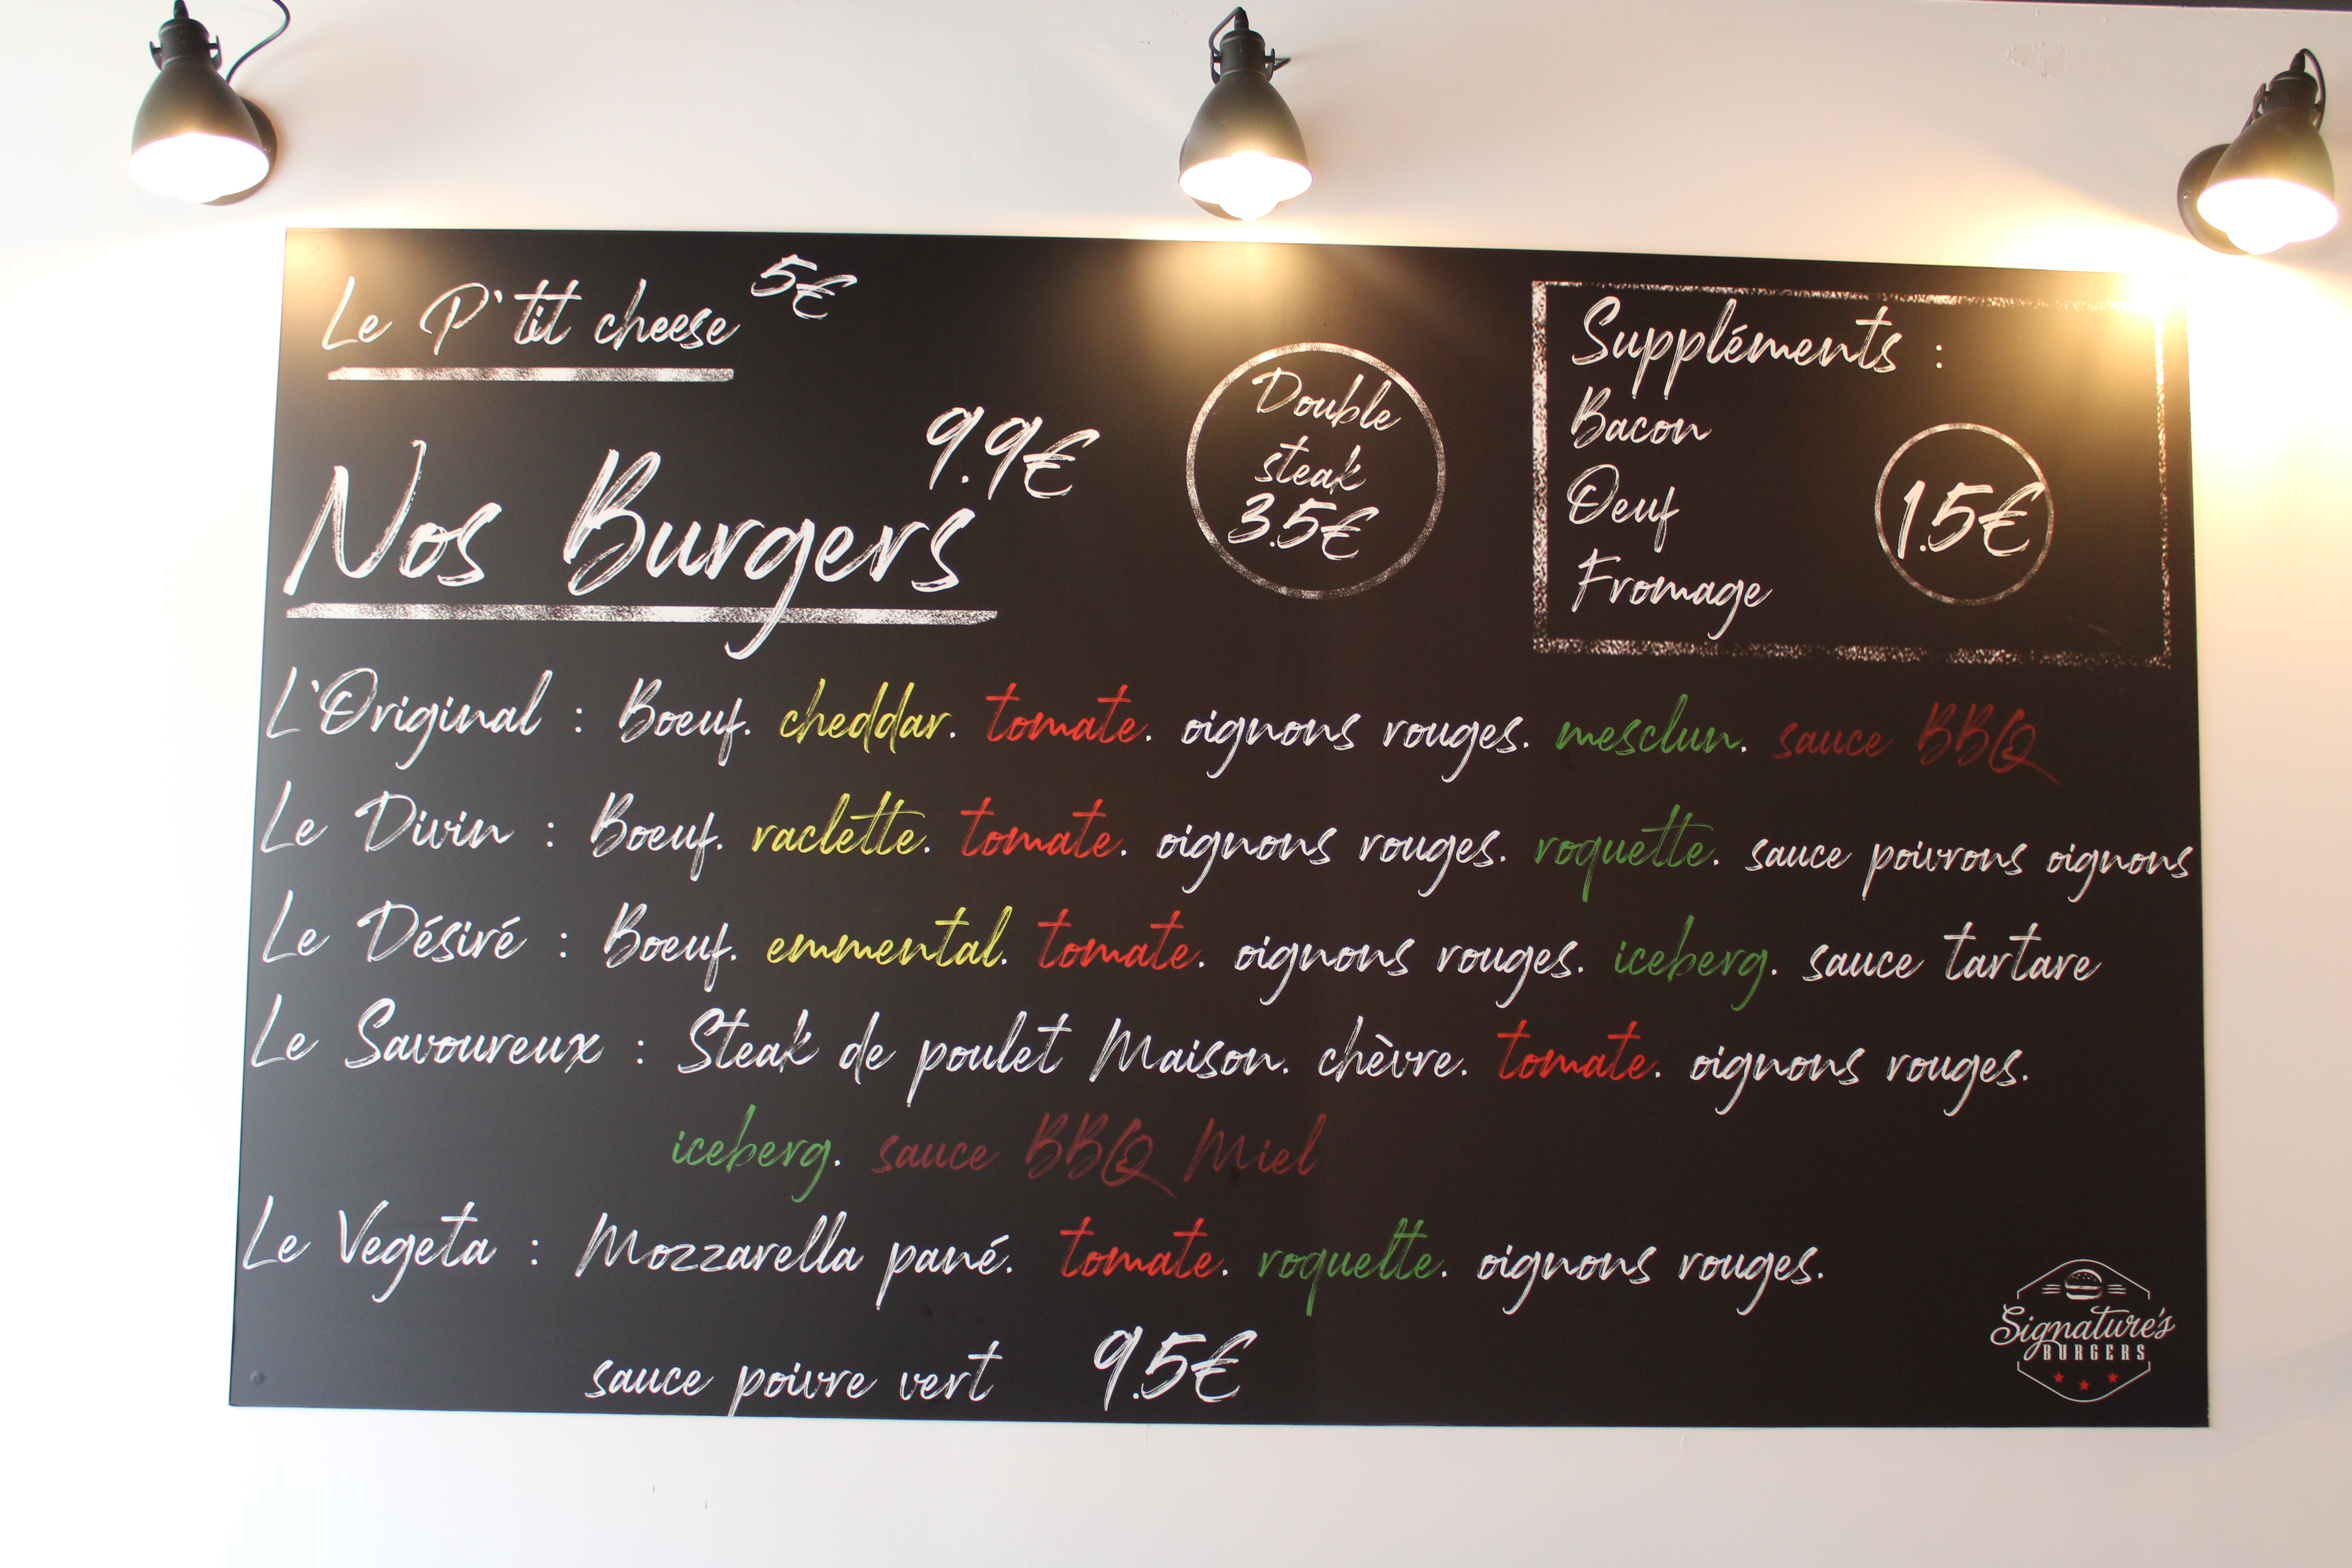 Le P'tit cheese 5€
Nos Burgers 9.9€
Double
steak
3.5€
Suppléments :
Bacon
Oeuf
Fromage
1.5€
L'Original : Boeuf. cheddar. tomate. oignons rouges. mesclun. sauce BBQ
Le Divin : Boeuf. raclette. tomate. oignons rouges. roquette. sauce poivrons oignons
Le Désiré : Boeuf. emmental. tomate. oignons rouges. iceberg. sauce tartare
Le Savoureux : Steak de poulet Maison. chèvre. tomate. oignons rouges.
iceberg. sauce BBQ Miel
Le Vegeta : Mozzarella pané. tomate. roquette. oignons rouges.
sauce poivre vert 9.5€
Signature's
BURGERS